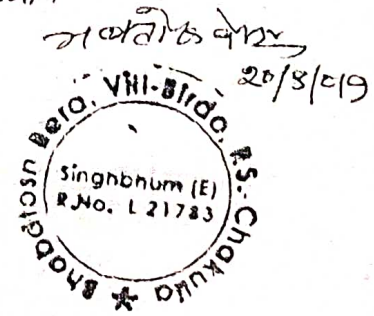 20/8/019
Bhabatosh Bera, Vill-Birdo, P.S.-Chakulia
Singhbhum (E)
R.No. L 21783